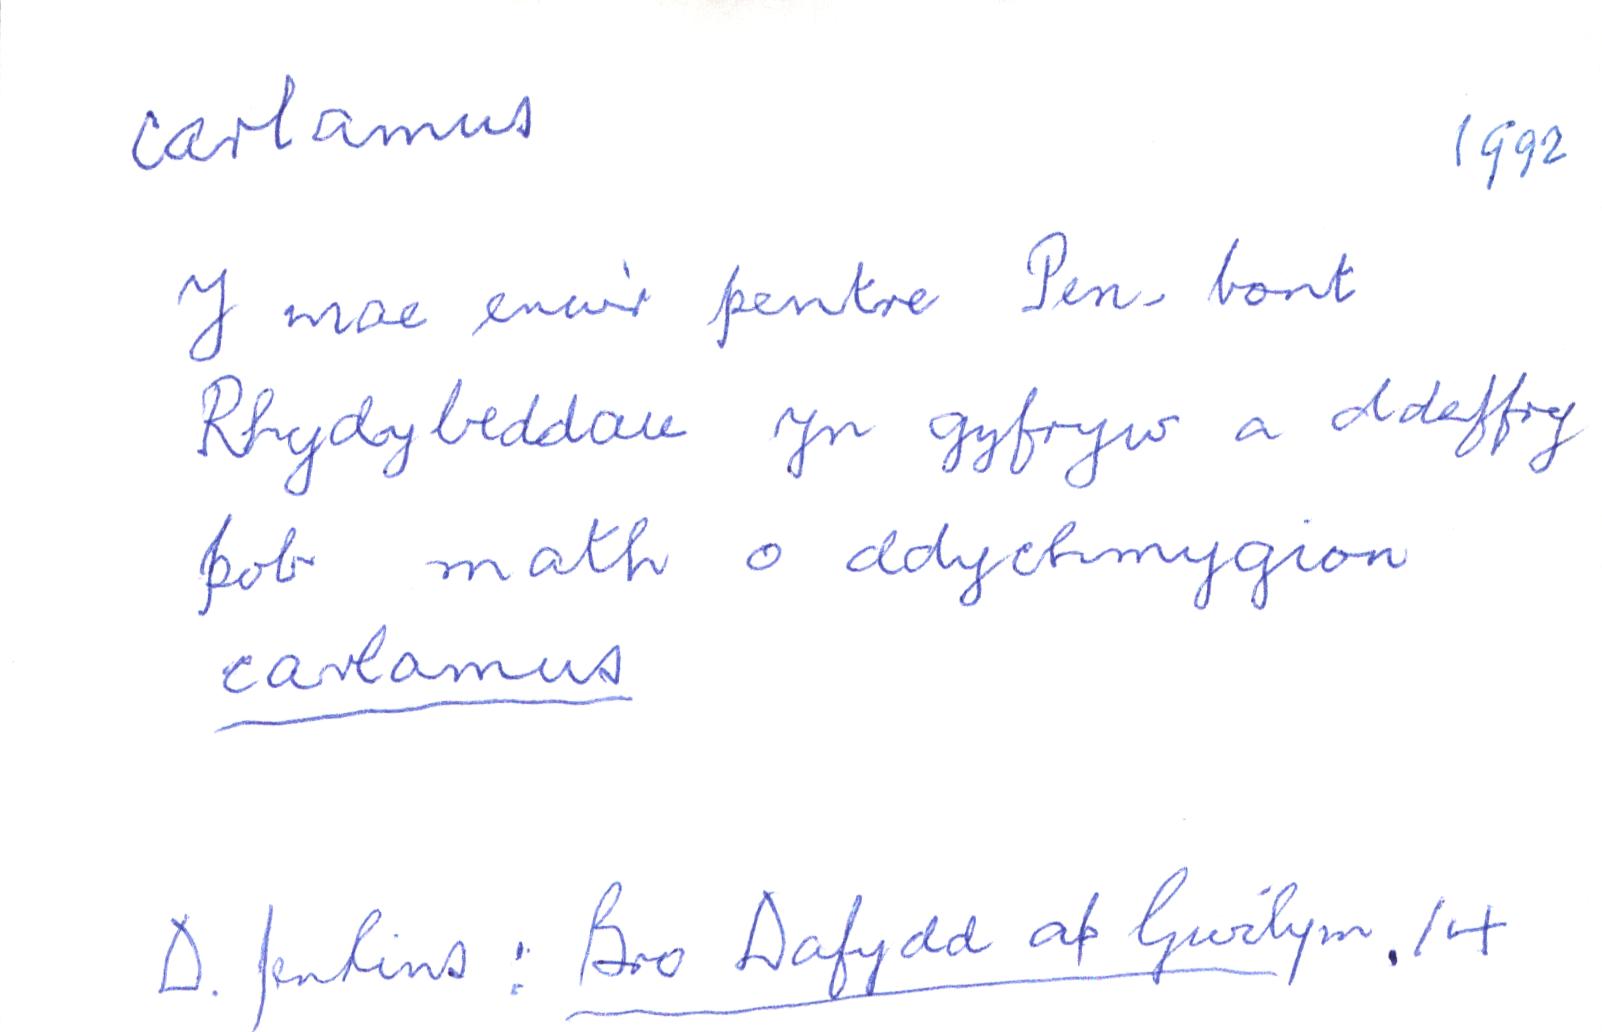 carlamus
1992
Y mae enwi'r pentre Pen-bont
Rhydybeddau yn gyfryw a ddeffry
pob math o ddychmygion
carlamus
D. Jenkins : Bro Dafydd ap Gwilym. 14